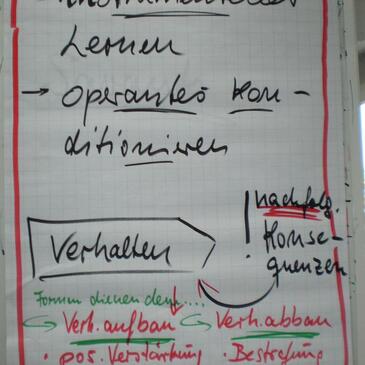 Instrumentelles
Lernen
→ operantes Kon-
ditionieren
Verhalten
! nachfolg.
Konse-
quenzen
Formen dienen dem....
Verh.aufbau
Verh.abbau
• pos. Verstärkung
• Bestrafung